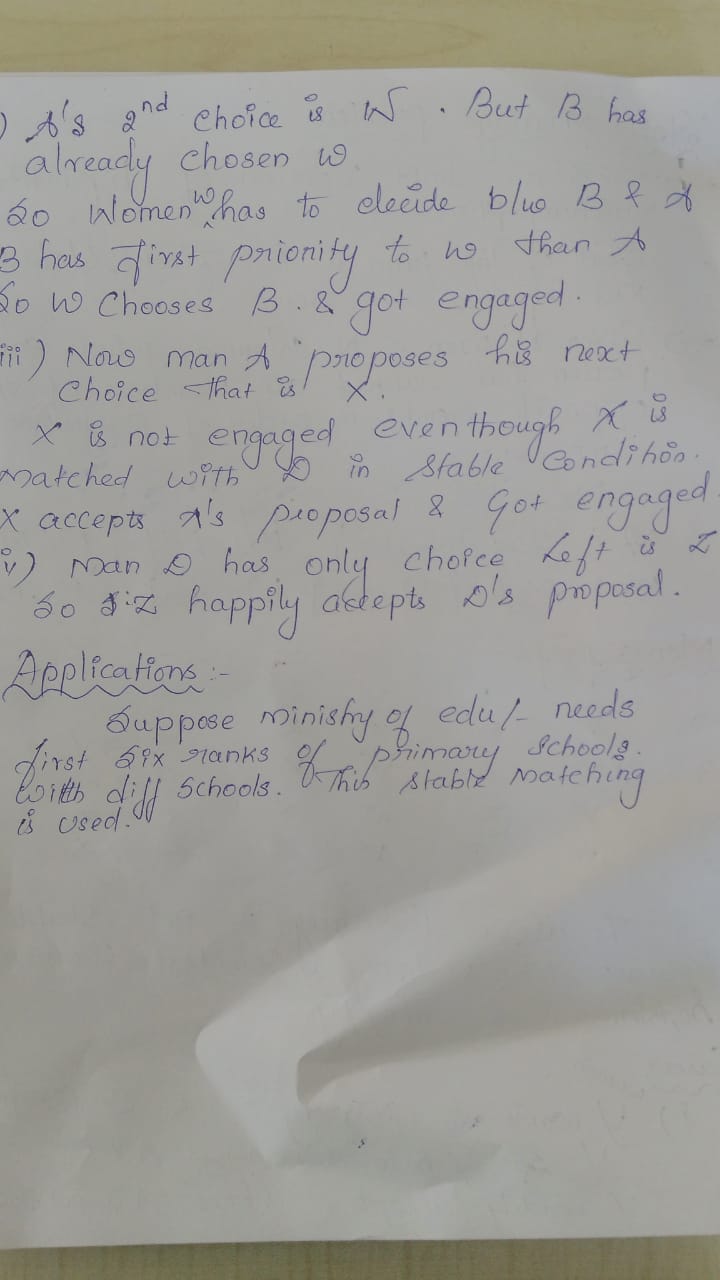 ) A's 2nd choice is W. But B has
already chosen W
So Women W has to decide b/w B & A
B has first prionity to W than A
So W Chooses B. & got engaged.
iii) Now man A proposes his next
Choice that is X.
X is not engaged eventhough X is
matched with D in Stable Condition.
X accepts A's proposal & Got engaged.
iv) Man D has only choice Left is Z
So Z happily accepts D's proposal.
Applications :-
Suppose ministry of edu/- needs
first six ranks of primary Schools.
with diff Schools. This stable Matching
is used.